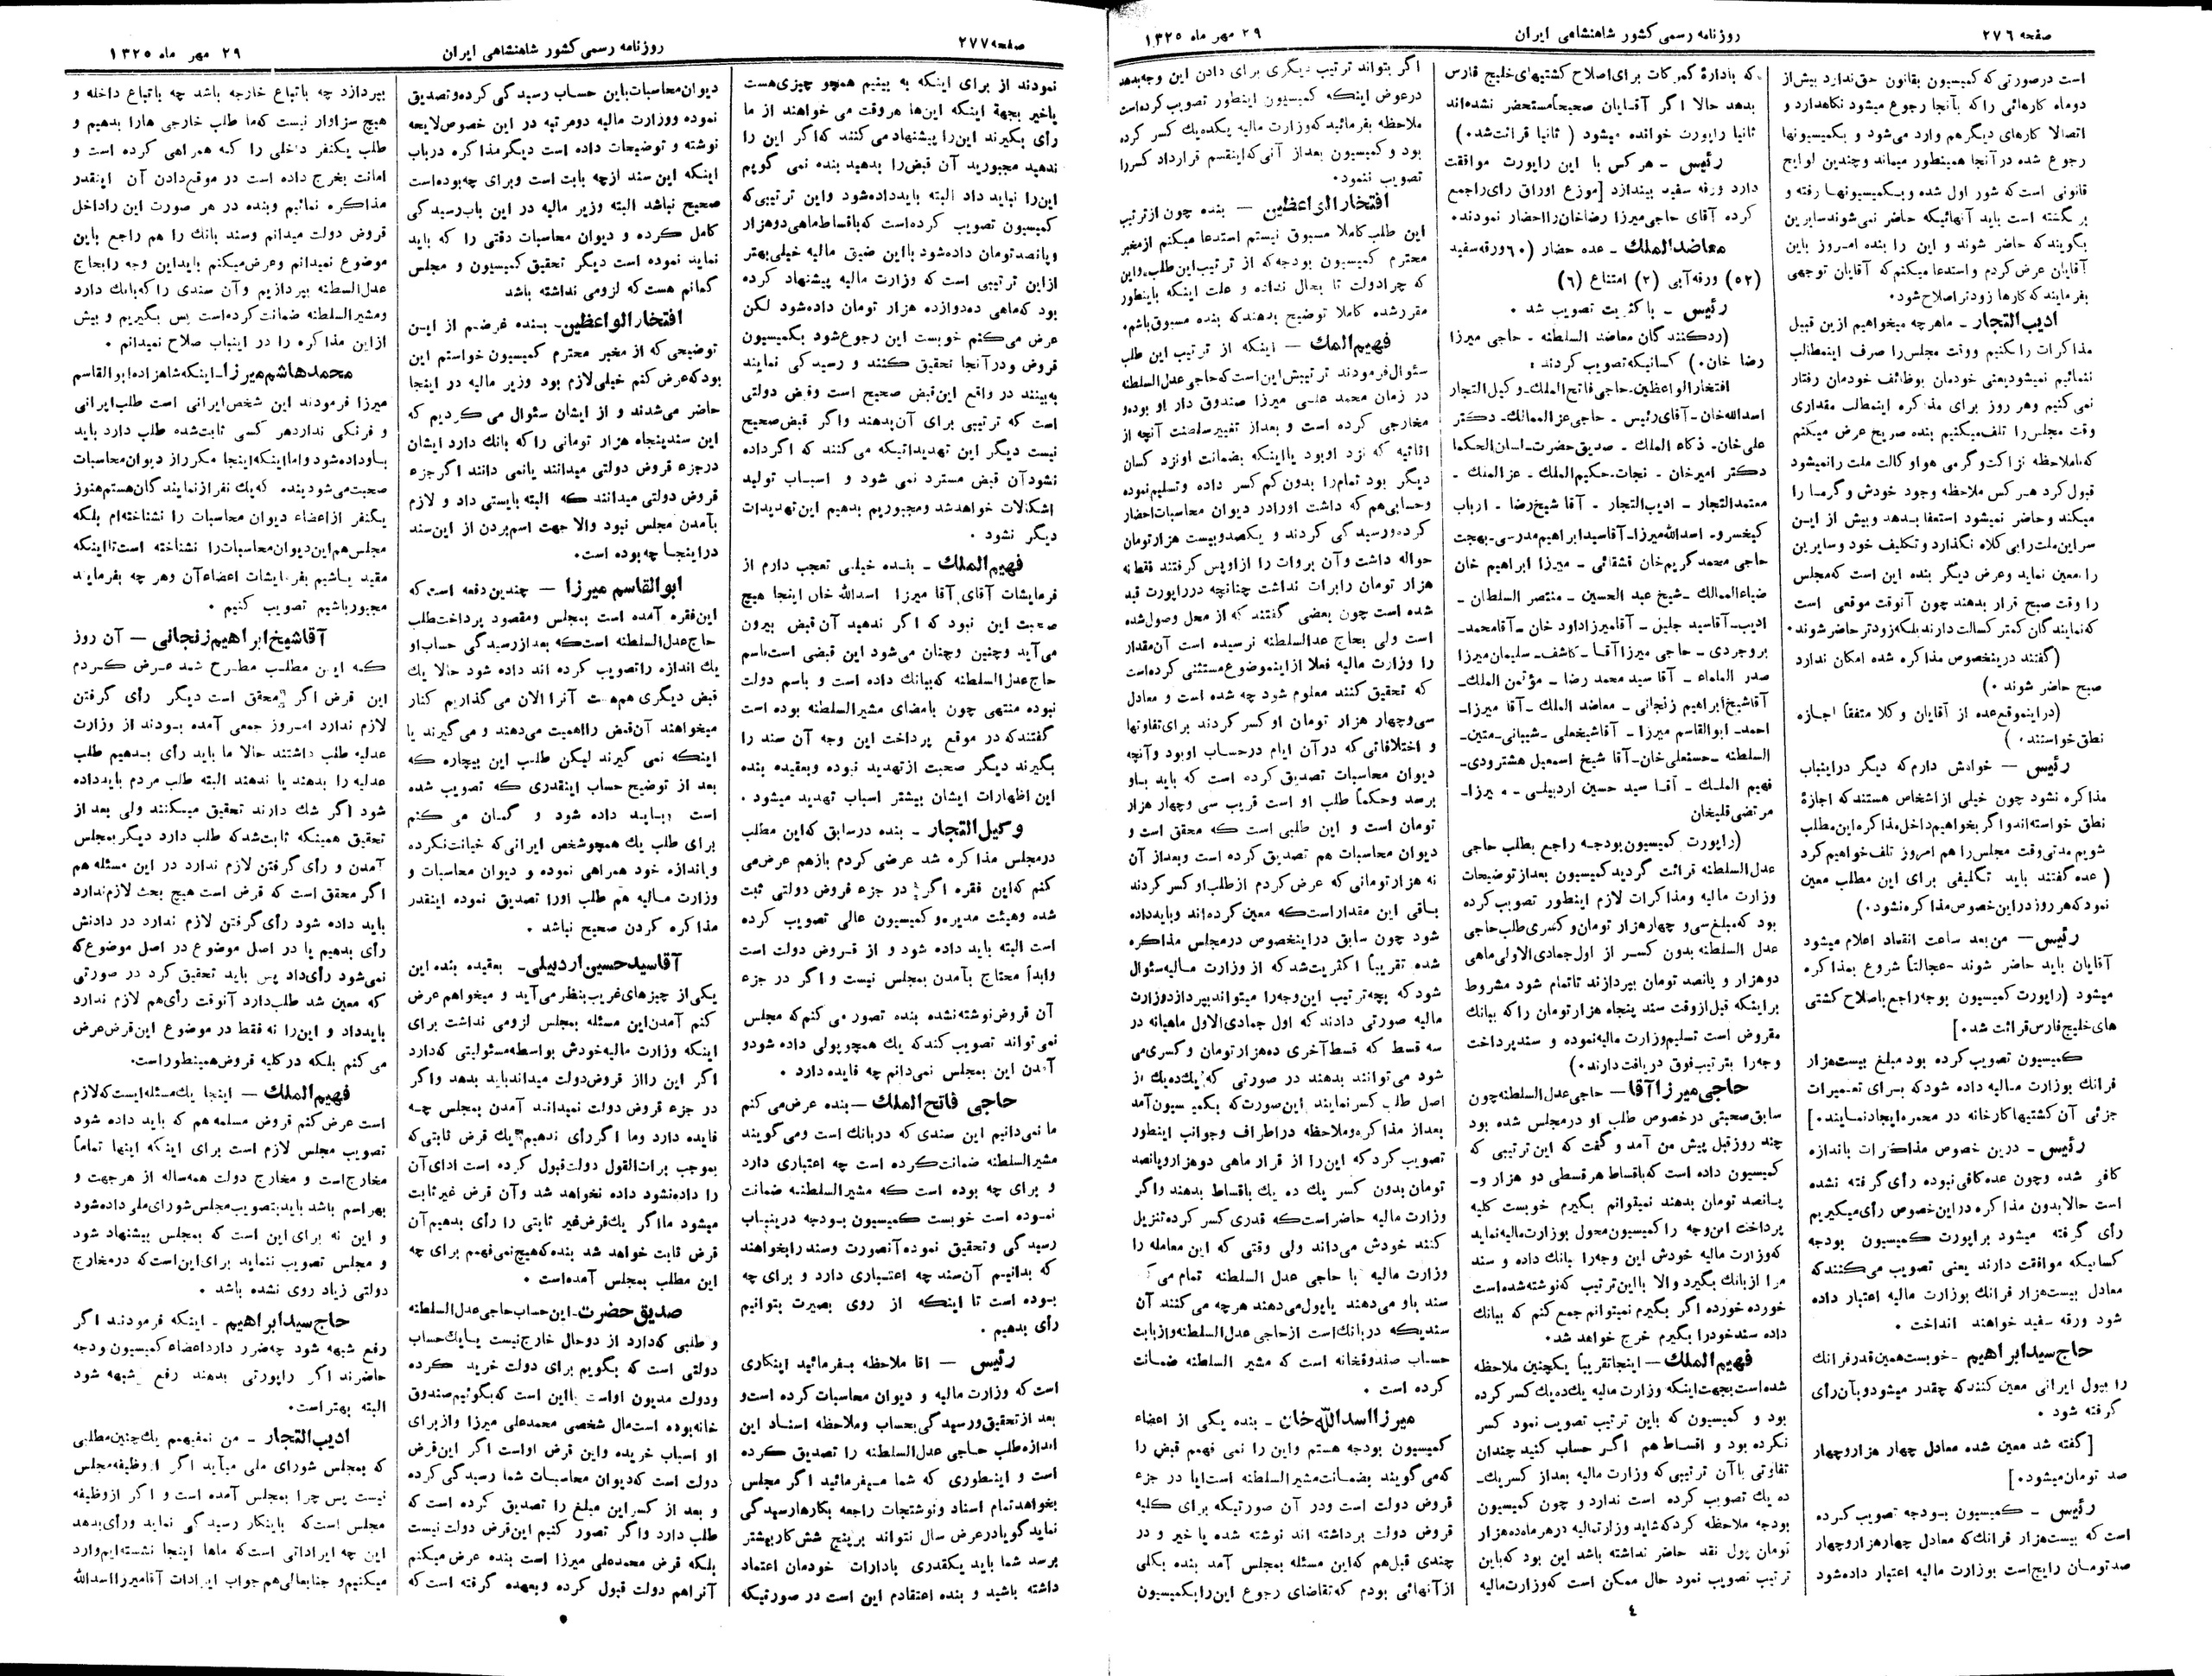 صفحه ۲۷۶
روزنامه رسمی کشور شاهنشاهی ایران
۲۹ مهر ماه ۱۳۲۵
است درصورتی که کمیسیون بقانون حق ندارد بیش از
دوماه کارهائی را که بآنجا رجوع میشود نگاهدارد و
اتصالا کارهای دیگر هم وارد می‌شود و بکمیسیونها
رجوع شده در آنجا همینطور میماند و چندین لوایح
قانونی است که شور اول شده و بکمیسیونها رفته و
برگشته است باید آنهائیکه حاضر نمی‌شوند سایرین
بگویند که حاضر شوند و این را بنده امروز باین
آقایان عرض کردم و استدعا میکنم که آقایان توجهی
بفرمایند که کارها زودتر اصلاح شود.
ادیب التجار ـ ماهر چه میخواهیم ازین قبیل
مذاکرات را نکنیم ووقت مجلس را صرف اینمطالب
ننمائیم نمیشود یعنی خودمان بوظائف خودمان رفتار
نمی‌کنیم وهر روز برای مذاکره اینمطلب مقداری
وقت مجلس را تلف میکنیم بنده صریح عرض میکنم
که با ملاحظه نزاکت و گرمی هوا وکالت ملت را نمیشود
قبول کرد هر کس ملاحظه وجود خودش و گرما را
میکند و حاضر نمیشود استعفا بدهد و بیش از این
سر این ملت را بی کلاه نگذارد و تکلیف خود و سایرین
را معین نماید و عرض دیگر بنده این است که مجلس
را وقت صبح قرار بدهند چون آنوقت موقعی است
که نمایندگان کمتر کسالت دارند بلکه زودتر حاضر شوند.
(گفتند درینخصوص مذاکره شده امکان ندارد
صبح حاضر شوند.)
(در اینموقع عده از آقایان وکلا متفقاً اجازه
نطق خواستند.)
رئیس — خواهش دارم که دیگر در اینباب
مذاکره نشود چون خیلی از اشخاص هستند که اجازهٔ
نطق خواسته‌اند و اگر بخواهیم داخل مذاکره این مطلب
شویم مدتی وقت مجلس را هم امروز تلف خواهیم کرد
(عده گفتند باید تکلیفی برای این مطلب معین
نمود که هر روز در این خصوص مذاکره نشود.)
رئیس — من بعد ساعت انعقاد اعلام میشود
آقایان باید حاضر شوند - عجالتاً شروع بمذاکره
میشود (راپورت کمیسیون بوجه راجع باصلاح کشتی
های خلیج فارس قرائت شد.]
کمیسیون تصویب کرده بود مبلغ بیست هزار
فرانک بوزارت مالیه داده شود که برای تعمیرات
جزئی آن کشتیها کارخانه در محمره ایجاد نمایند.]
رئیس ـ درین خصوص مذاکرات باندازه
کافی شده وچون عده کافی نبوده رأی گرفته نشده
است حالا بدون مذاکره در این خصوص رأی میگیریم
رأی گرفته میشود براپورت کمیسیون بودجه
کسانیکه موافقت دارند یعنی تصویب می‌کنند که
معادل بیست هزار فرانک بوزارت مالیه اعتبار داده
شود ورقه سفید خواهند انداخت.
حاج سید ابراهیم ـ خوبست همین قدر فرانک
را بپول ایرانی معین کنند که چقدر میشود و بآن رأی
گرفته شود.
[گفته شد معین شده معادل چهار هزار و چهار
صد تومان میشود.]
رئیس ـ کمیسیون بودجه تصویب کرده
است که بیست هزار فرانک که معادل چهار هزار و چهار
صد تومان رایج است بوزارت مالیه اعتبار داده شود
که بادارهٔ گمرکات برای اصلاح کشتیهای خلیج فارس
بدهد حالا اگر آقایان صحیحاً مستحضر نشده‌اند
ثانیا راپورت خوانده میشود (ثانیا قرائت شد.)
رئیس ـ هر کس با این راپورت موافقت
دارد ورقه سفید بیندازد [موزع اوراق رای راجمع
کرده آقای حاجی میرزا رضاخان را احضار نمودند.
معاضد الملک ـ عده حضار (۶۰ ورقه سفید
(۵۲) ورقه آبی (۲) امتناع (۶)
رئیس ـ با کثریت تصویب شد.
(ردکنندگان معاضد السلطنه ـ حاجی میرزا
رضا خان.) کسانیکه تصویب کردند:
افتخار الواعظین ـ حاجی فاتح الملک ـ وکیل التجار
اسدالله خان ـ آقای رئیس ـ حاجی عز الممالک ـ دکتر
علی خان ـ ذکاء الملک ـ صدیق حضرت ـ لسان الحکما
دکتر امیر خان ـ نجات ـ حکیم الملک ـ عز الملک ـ
معتمد التجار ـ ادیب التجار ـ آقا شیخ رضا ـ ارباب
کیخسرو ـ اسدالله میرزا ـ آقا سید ابراهیم مدرسی ـ بهجت
حاجی محمد کریم خان قشقائی ـ میرزا ابراهیم خان
ضیاء الممالک ـ شیخ عبد الحسین ـ منتصر السلطان ـ
ادیب ـ آقا سید جلیل ـ آقا میرزا داود خان ـ آقا محمد ـ
بروجردی ـ حاجی میرزا آقا ـ کاشف ـ سلیمان میرزا
صدر العلماء ـ آقا سید محمد رضا ـ مؤتمن الملک ـ
آقا شیخ ابراهیم زنجانی ـ معاضد الملک ـ آقا میرزا ـ
احمد ـ ابوالقاسم میرزا ـ آقا شیخعلی ـ شیبانی ـ متین ـ
السلطنه ـ حسنعلی خان ـ آقا شیخ اسمعیل هشترودی ـ
فهیم الملک ـ آقا سید حسین اردبیلی ـ میرزا ـ
مرتضی قلیخان
(راپورت کمیسیون بودجه راجع بطلب حاجی
عدل السلطنه قرائت گردید کمیسیون بعد از توضیحات
وزارت مالیه و مذاکرات لازم اینطور تصویب کرده
بود که مبلغ سی و چهار هزار تومان و کسری طلب حاجی
عدل السلطنه بدون کسر از اول جمادی الاولی ماهی
دو هزار و پانصد تومان بپردازند تا تمام شود مشروط
براینکه قبل از وقت سند پنجاه هزار تومان را که ببانک
مقروض است تسلیم وزارت مالیه نموده و سند پرداخت
وجه را بترتیب فوق دریافت دارند.)
حاجی میرزا آقا — حاجی عدل السلطنه چون
سابق صحبتی در خصوص طلب او در مجلس شده بود
چند روز قبل پیش من آمد و گفت که این ترتیبی که
کمیسیون داده است که باقساط هر قسطی دو هزار و ـ
پانصد تومان بدهند نمیتوانم بگیرم خوبست کلیه
پرداخت این وجه را کمیسیون محول بوزارت مالیه نماید
که وزارت مالیه خودش این وجه را ببانک داده و سند
مرا از بانک بگیرد والا با این ترتیب که نوشته شده است
خورده خورده اگر بگیرم نمیتوانم جمع کنم که ببانک
داده سند خود را بگیرم خرج خواهد شد.
فهیم الملک — اینجا تقریباً یکچنین ملاحظه
شده است بجهت اینکه وزارت مالیه یک ده یک کسر کرده
بود و کمیسیون که باین ترتیب تصویب نمود کسر
نکرده بود و اقساط هم اگر حساب کنید چندان
تفاوتی با آن ترتیبی که وزارت مالیه بعد از کسر یک ـ
ده یک تصویب کرده است ندارد و چون کمیسیون
بودجه ملاحظه کرد که شاید وزارت مالیه در هر ماه ده هزار
تومان پول نقد حاضر نداشته باشد این بود که باین
ترتیب تصویب نمود حال ممکن است که وزارت مالیه
اگر بتواند ترتیب دیگری برای دادن این وجه بدهد
در عوض اینکه کمیسیون اینطور تصویب کرده است
ملاحظه بفرمائید که وزارت مالیه یکده یک کسر کرده
بود و کمیسیون بعد از آنی که اینقسم قرار داد کسر را
تصویب ننمود.
افتخار الواعظین — بنده چون از ترتیب
این طلب کاملا مسبوق نیستم استدعا میکنم از مخبر
محترم کمیسیون بودجه که از ترتیب این طلب و این
که چرا دولت تا بحال نداده و علت اینکه باینطور
مقرر شده کاملا توضیح بدهند که بنده مسبوق باشم.
فهیم الملک — اینکه از ترتیب این طلب
سئوال فرمودند ترتیبش این است که حاجی عدل السلطنه
در زمان محمد علی میرزا صندوق دار او بوده و
مخارجی کرده است و بعد از تغییر سلطنت آنچه از
اثاثیه که نزد او بود یا اینکه بضمانت او نزد کسان
دیگر بود تمام را بدون کم کسر داده و تسلیم نموده
و حسابی هم که داشت او را در دیوان محاسبات احضار
کرده و رسیدگی کردند و یکصد و بیست هزار تومان
حواله داشت و آن بروات را از او پس گرفتند فقط نه
هزار تومان را برات نداشت چنانچه در راپورت قید
شده است چون بعضی گفتند که از محل وصول شده
است ولی بحاج عدالسلطنه نرسیده است آن مقدار
را وزارت مالیه فعلا از اینموضوع مستثنی کرده است
که تحقیق کنند معلوم شود چه شده است و معادل
سی و چهار هزار تومان او کسر کردند برای تفاوتها
و اختلافاتی که در آن ایام در حساب او بود و آنچه
دیوان محاسبات تصدیق کرده است که باید باو
برسد و حکماً طلب او است قریب سی و چهار هزار
تومان است و این طلبی است که محقق است و
دیوان محاسبات هم تصدیق کرده است و بعد از آن
نه هزار تومانی که عرض کردم از طلب او کسر کردند
باقی این مقدار است که معین کرده‌اند و باید داده
شود چون سابق در اینخصوص در مجلس مذاکره
شده تقریباً اکثریت شد که از وزارت مالیه سئوال
شود که بچه ترتیب این وجه را میتواند بپردازد وزارت
مالیه صورتی دادند که اول جمادی الاول ماهیانه در
سه قسط که قسط آخری ده هزار تومان و کسری می
شود می‌توانند بدهند در صورتی که یک ده یک از
اصل طلب کسر نمایند این صورت که بکمیسیون آمد
بعد از مذاکره و ملاحظه در اطراف و جوانب اینطور
تصویب کرد که این را از قرار ماهی دو هزار و پانصد
تومان بدون کسر یک ده یک باقساط بدهند و اگر
وزارت مالیه حاضر است که قدری کسر کرده تنزیل
کنند خودش می‌داند ولی وقتی که این معامله را
وزارت مالیه با حاجی عدل السلطنه تمام می
سند باو می‌دهند یا پول می‌دهند هر چه می‌کنند آن
سندیکه در بانک است از حاجی عدل السلطنه و از بابت
حساب صندوقخانه است که مشیر السلطنه ضمانت
کرده است.
میرزا اسدالله خان ـ بنده یکی از اعضاء
کمیسیون بودجه هستم و این را نمی فهمم قبض را
که می‌گویند بضمانت مشیر السلطنه است ایا در جزء
قروض دولت است و در آن صورتیکه برای کلیه
قروض دولت برداشته اند نوشته شده یا خیر و در
چندی قبل هم که این مسئله بمجلس آمد بنده بکلی
از آنهائی بودم که تقاضای رجوع این را بکمیسیون
۴
صفحه ۲۷۷
روزنامه رسمی کشور شاهنشاهی ایران
۲۹ مهر ماه ۱۳۲۵
نمودند از برای اینکه به بینیم همچو چیزی هست
یا خیر بجهة اینکه این‌ها هر وقت می خواهند از ما
رأی بگیرند این را پیشنهاد می کنند که اگر این را
ندهید مجبورید آن قبض را بدهید بنده نمی گویم
این را نباید داد البته باید داده شود و این ترتیبی که
کمیسیون تصویب کرده است که باقساط ماهی دو هزار
و پانصد تومان داده شود با این ضیق مالیه خیلی بهتر
از این ترتیبی است که وزارت مالیه پیشنهاد کرده
بود که ماهی ده دوازده هزار تومان داده شود لکن
عرض می‌کنم خوبست این رجوع شود بکمیسیون
قروض و در آنجا تحقیق کنند و رسیدگی نمایند
به‌بینند در واقع این قبض صحیح است وقرض دولتی
است که ترتیبی برای آن بدهند و اگر قبض صحیح
نیست دیگر این تهدیداتیکه می کنند که اگر داده
نشود آن قبض مسترد نمی شود و اسباب تولید
اشکالات خواهد شد و مجبوریم بدهیم این تهدیدات
دیگر نشود.
فهیم الملک ـ بنده خیلی تعجب دارم از
فرمایشات آقای آقا میرزا اسدالله خان اینجا هیچ
صحبت این نبود که اگر ندهید آن قبض بیرون
می‌آید و چنین و چنان می‌شود این قبضی است باسم
حاج عدل السلطنه که ببانک داده است و باسم دولت
نبوده منتهی چون بامضای مشیر السلطنه بوده است
گفتند که در موقع پرداخت این وجه آن سند را
بگیرند دیگر صحبت از تهدید نبوده و بعقیده بنده
این اظهارات ایشان بیشتر اسباب تهدید میشود.
وکیل التجار ـ بنده در سابق که این مطلب
در مجلس مذاکره شد عرضی کردم باز هم عرض می
کنم که این فقره اگر در جزء قروض دولتی ثبت
شده و هیئت مدیره و کمیسیون عالی تصویب کرده
است البته باید داده شود و از قروض دولت است
وابداً محتاج بآمدن بمجلس نیست و اگر در جزء
آن قروض نوشته نشده بنده تصور می کنم که مجلس
نمی‌تواند تصویب کند که یک همچو پولی داده شود و
آمدن این بمجلس نمی‌دانم چه فایده دارد.
حاجی فاتح الملک — بنده عرض می کنم
ما نمی‌دانیم این سندی که در بانک است و می گویند
مشیر السلطنه ضمانت کرده است چه اعتباری دارد
و برای چه بوده است که مشیر السلطنه ضمانت
نموده است خوبست کمیسیون بودجه درینباب
رسیدگی و تحقیق نموده آنصورت و سند را بخواهند
که بدانیم آن سند چه اعتباری دارد و برای چه
بوده است تا اینکه از روی بصیرت بتوانیم
رأی بدهیم.
رئیس — اقا ملاحظه بفرمائید اینکاری
است که وزارت مالیه و دیوان محاسبات کرده است و
بعد از تحقیق و رسیدگی بحساب و ملاحظه اسناد این
اندازه طلب حاجی عدل السلطنه را تصدیق کرده
است و اینطوری که شما میفرمائید اگر مجلس
بخواهد تمام اسناد و نوشتجات راجعه بکارها رسیدگی
نماید گویا در عرض سال نتواند بر پنج شش کار بیشتر
برسد شما باید یکقدری بادارات خودمان اعتماد
داشته باشید و بنده اعتقادم این است در صورتیکه
دیوان محاسبات باین حساب رسیدگی کرده و تصدیق
نموده و وزارت مالیه دو مرتبه در این خصوص لایحه
نوشته و توضیحات داده است دیگر مذاکره در باب
اینکه این سند از چه بابت است و برای چه بوده است
صحیح نباشد البته وزیر مالیه در این باب رسیدگی
کامل کرده و دیوان محاسبات دقتی را که باید
نماید نموده است دیگر تحقیق کمیسیون و مجلس
گمانم هست که لزومی نداشته باشد
افتخار الواعظین ـ بنده غرضم از این
توضیحی که از مخبر محترم کمیسیون خواستم این
بود که عرض کنم خیلی لازم بود وزیر مالیه دو اینجا
حاضر می‌شدند و از ایشان سئوال می کردیم که
این سند پنجاه هزار تومانی را که بانک دارد ایشان
در جزء قروض دولتی میدانند یا نمی دانند اگر جزء
قروض دولتی میدانند که البته بایستی داد و لازم
بآمدن مجلس نبود والا جهت اسم بردن از این سند
در اینجا چه بوده است.
ابوالقاسم میرزا — چندین دفعه است که
این فقره آمده است بمجلس و مقصود پرداخت طلب
حاج عدل السلطنه است که بعد از رسیدگی حساب او
یک اندازه را تصویب کرده اند داده شود حالا یک
قبض دیگری هم هست آنرا الان می گذاریم کنار
میخواهند آن قبض را اهمیت می‌دهند و می گیرند یا
اینکه نمی گیرند لیکن طلب این بیچاره که
بعد از توضیح حساب اینقدری که تصویب شده
است باید داده شود و گمان می کنم
برای طلب یک همچو شخص ایرانی که خیانت نکرده
و باندازه خود همراهی نموده و دیوان محاسبات و
وزارت مالیه هم طلب اورا تصدیق نموده اینقدر
مذاکره کردن صحیح نباشد.
آقا سید حسین اردبیلی ـ بعقیده بنده این
یکی از چیزهای غریب بنظر می‌آید و میخواهم عرض
کنم آمدن این مسئله بمجلس لزومی نداشت برای
اینکه وزارت مالیه خودش بواسطه مسئولیتی که دارد
اگر این را از قروض دولت میداند باید بدهد و اگر
در جزء قروض دولت نمیداند آمدن بمجلس چه
فایده دارد و ما اگر رأی ندهیم یک قرض ثابتی که
بموجب برات القول دولت قبول کرده است ادای آن
را داده نشود داده نخواهد شد و آن قرض غیر ثابت
میشود ما اگر یک قرض غیر ثابتی را رأی بدهیم آن
قرض ثابت خواهد شد بنده که هیچ نمی فهمم برای چه
این مطلب بمجلس آمده است.
صدیق حضرت ـ این حساب حاجی عدل السلطنه
و طلبی که دارد از دو حال خارج نیست یا یک حساب
دولتی است که بگویم برای دولت خرید کرده
و دولت مدیون اواست یا این است که بگوئیم صندوق
خانه بوده است مال شخصی محمد علی میرزا و از برای
او اسباب خریده و این قرض اواست اگر این قرض
دولت است که دیوان محاسبات شما رسیدگی کرده
و بعد از کسر این مبلغ را تصدیق کرده است که
طلب دارد و اگر تصور کنیم این قرض دولت نیست
بلکه قرض محمد علی میرزا است بنده عرض میکنم
آنرا هم دولت قبول کرده و بعهده گرفته است که
بپردازد چه با تباع خارجه باشد چه با تباع داخله و
هیچ سزاوار نیست که ما طلب خارجی هارا بدهیم و
طلب یکنفر داخلی را که همراهی کرده است و
امانت بخرج داده است در موقع دادن آن اینقدر
مذاکره نمائیم و بنده در هر صورت این را داخل
قروض دولت میدانم و سند بانک را هم راجع باین
موضوع نمیدانم و عرض میکنم باید این وجه را بحاج
عدل السلطنه بپردازیم و آن سندی را که بانک دارد
و مشیر السلطنه ضمانت کرده است پس بگیریم و بیش
از این مذاکره را در اینباب صلاح نمیدانم.
محمد هاشم میرزا ـ اینکه شاهزاده ابو القاسم
میرزا فرمودند این شخص ایرانی است طلب ایرانی
و فرنگی ندارد هر کسی ثابت شده طلب دارد باید
باو داده شود و اما اینکه اینجا مکرر از دیوان محاسبات
صحبت می‌شود بنده که یک نفر از نمایندگان هستم هنوز
یکنفر از اعضاء دیوان محاسبات را نشناخته‌ام بلکه
مجلس هم این دیوان محاسبات را نشناخته است تا اینکه
مقید باشیم بفرمایشات اعضاء آن و هر چه بفرمایند
مجبور باشیم تصویب کنیم.
آقا شیخ ابراهیم زنجانی — آن روز
که این مطلب مطرح شد عرض کردم
این قرض اگر محقق است دیگر رأی گرفتن
لازم ندارد امروز جمعی آمده بودند از وزارت
عدلیه طلب داشتند حالا ما باید رأی بدهیم طلب
عدلیه را بدهند یا ندهند البته طلب مردم باید داده
شود اگر شک دارند تحقیق میکنند ولی بعد از
تحقیق همینکه ثابت شد که طلب دارد دیگر بمجلس
آمدن و رأی گرفتن لازم ندارد در این مسئله هم
اگر محقق است که قرض است هیچ بحث لازم ندارد
باید داده شود رأی گرفتن لازم ندارد در دادنش
رأی بدهیم یا در اصل موضوع در اصل موضوع که
نمی‌شود رأی داد پس باید تحقیق کرد در صورتی
که معین شد طلب دارد آنوقت رأی هم لازم ندارد
باید داد و این را نه فقط در موضوع این قرض عرض
می کنم بلکه در کلیه قروض همینطور است.
فهیم الملک — اینجا یک مسئله ایست که لازم
است عرض کنم قروض مسلمه هم که باید داده شود
تصویب مجلس لازم است برای اینکه اینها تماماً
مخارج است و مخارج دولت همه ساله از هر جهت و
بهر اسم باشد باید بتصویب مجلس شورای ملی داده شود
و این نه برای این است که بمجلس پیشنهاد شود
و مجلس تصویب ننماید برای این است که در مخارج
دولتی زیاد روی نشده باشد.
حاج سید ابراهیم ـ اینکه فرمودند اگر
رفع شبهه شود چه ضرر دارد اعضاء کمیسیون بودجه
حاضرند اگر راپورتی بدهند رفع شبهه شود
البته بهتر است.
ادیب التجار ـ من نمیفهمم یک چنین مطلبی
که بمجلس شورای ملی میآید اگر از وظیفه مجلس
نیست پس چرا بمجلس آمده است و اگر از وظیفه
مجلس است که باینکار رسیدگی نماید و رأی بدهد
این چه ایراداتی است که ماها اینجا نشسته‌ایم وارد
میکنیم و جنابعالی هم جواب ایرادات آقا میرزا اسدالله
۵